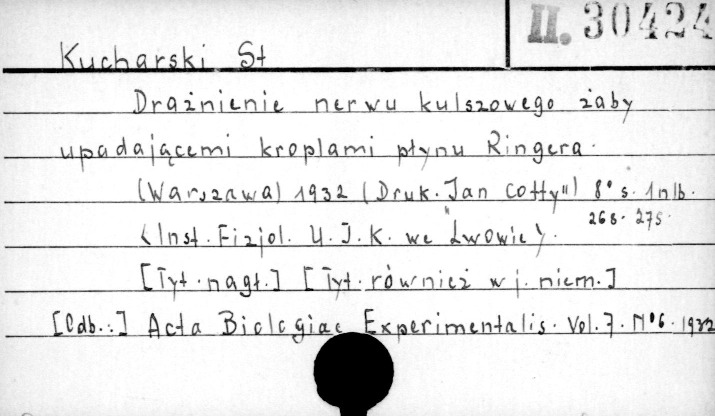 II. 30424
Kucharski St
Drażnienie nerwu kulszowego żaby
upadającemi kroplami płynu Ringera.
(Warszawa) 1932 (Druk. Jan Cotty") 8° s. 1nlb.
268. 275.
<Inst. Fizjol. U. J. K. we Lwowie>.
[Tyt. nagł.] [Tyt. również w j. niem.]
[Odb.:] Acta Biologiae Experimentalis. Vol. 7. N°6. 1932